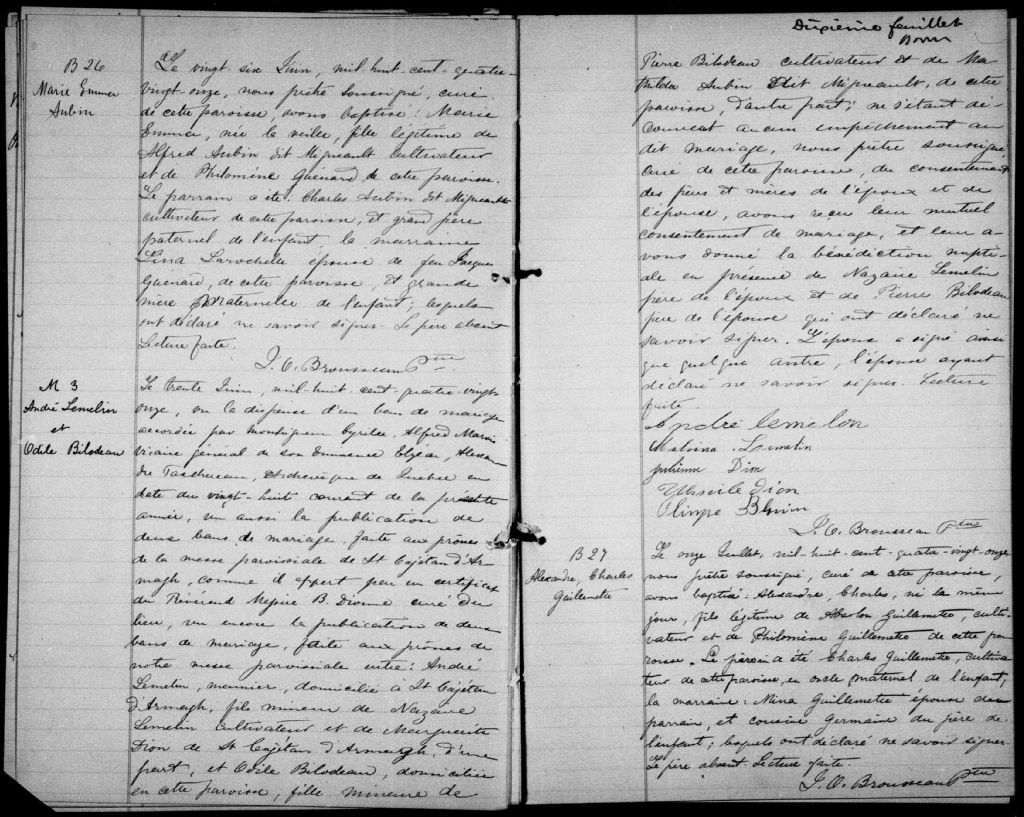 B 26
Marie Emma
Aubin
Le vingt-six Juin, mil-huit-cent-quatre-
vingt-onze, nous prêtre soussigné, curé
de cette paroisse, avons baptisé: Marie
Emma, née la veille, fille légitime de
Alfred Aubin dit Mignault cultivateur
et de Philomène Guénard, de cette paroisse.
Le parrain a été Charles Aubin dit Mignault
cultivateur de cette paroisse, et grand père
paternel de l'enfant, la marraine
Lina Larochelle épouse de feu Jacques
Guénard, de cette paroisse, et grande
mère maternelle de l'enfant; lesquels
ont déclaré ne savoir signer. Le père absent
Lecture faite.
J. O. Brousseau Ptre
M 3
André Lemelin
et
Odile Bilodeau
Le trente Juin, mil-huit-cent-quatre-vingt-
onze, vu la dispense d'un ban de mariage
accordée par Monseigneur Cyrille, Alfred Marois
vicaire général de son Eminence Elzéar, Alexan-
dre Taschereau, Archevêque de Québec en
date du vingt-huit courant de la présente
année, vu aussi la publication de
deux bans de mariage, faite aux prônes
de la messe paroissiale de St Cajétan d'Ar-
magh, comme il appert par un certificat
du Révérend Messire B. Dionne curé du
lieu, vu encore la publication de deux
bans de mariage, faite aux prônes de
notre messe paroissiale entre: André
Lemelin, meunier, domicilié à St Cajétan
d'Armagh, fils mineur de Nazaire
Lemelin cultivateur et de Marguerite
Dion de St Cajétan d'Armagh, d'une
part, et Odile Bilodeau, domiciliée
en cette paroisse, fille mineure de
Dixième feuillet
Pierre Bilodeau cultivateur et de Ma-
thilda Aubin dit Mignault, de cette
paroisse, d'autre part; ne s'étant dé-
couvert aucun empêchement au
dit mariage, nous prêtre soussigné,
curé de cette paroisse, du consentement
des pères et mères de l'époux et de
l'épouse, avons reçu leur mutuel
consentement de mariage, et leur a-
vons donné la bénédiction nupti-
ale en présence de Nazaire Lemelin
père de l'époux et de Pierre Bilodeau
père de l'épouse qui ont déclaré ne
savoir signer. L'époux a signé ainsi
que quelque autre, l'épouse ayant
déclaré ne savoir signer. Lecture
faite.
André lemelon
Malvina Lemelin
Julienne Dion
Ursule Dion
Olimpe Blouin
J. O. Brousseau Ptre
B 27
Alexandre, Charles
Guillemette
Le onze Juillet, mil-huit-cent-quatre-vingt-onze
nous prêtre soussigné, curé de cette paroisse,
avons baptisé: Alexandre, Charles, né le même
jour, fils légitime de Absolon Guillemette, culti-
vateur et de Philomène Guillemette de cette pa-
roisse. Le parrain a été Charles Guillemette, cultiva-
teur de cette paroisse, en oncle maternel de l'enfant;
la marraine: Mina Guillemette épouse du
parrain, et cousine Germaine du père de
l'enfant; lesquels ont déclaré ne savoir signer.
Le père absent. Lecture faite.
J. O. Brousseau Ptre